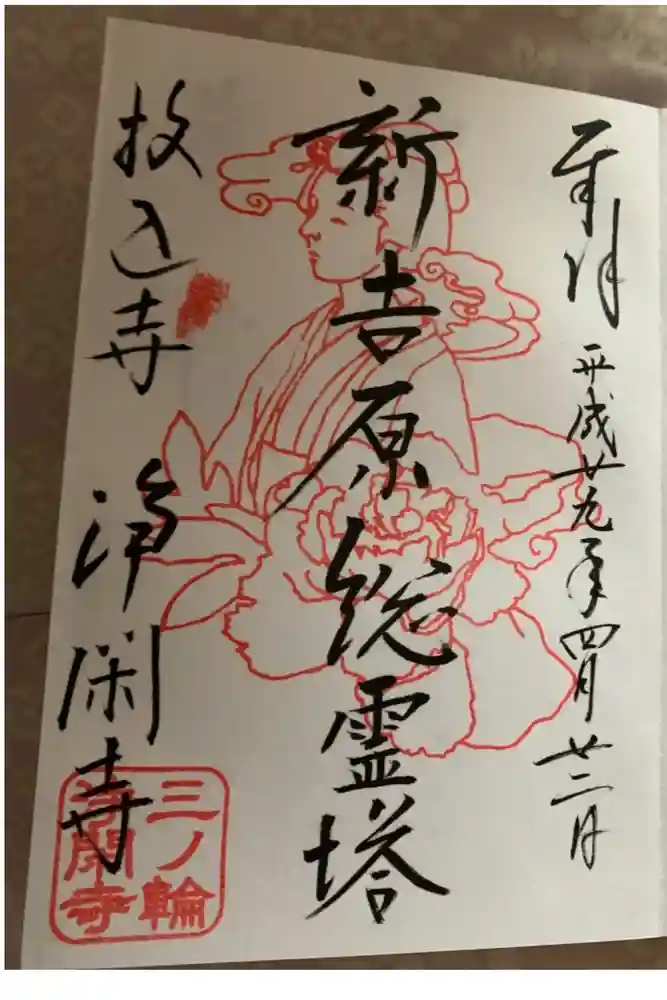 奉拝 平成廿九年四月廿二日
新吉原総霊塔
投込寺 浄閑寺
三ノ輪
浄閑寺